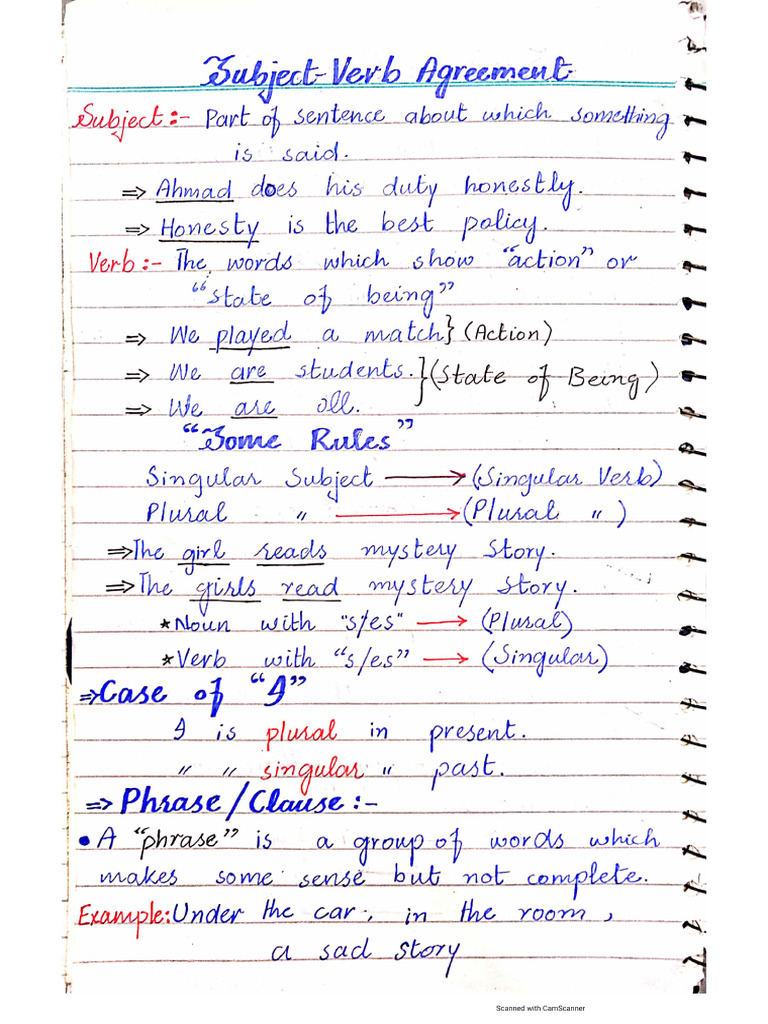 Subject-Verb Agreement
Subject:- Part of sentence about which something
is said.
⇒ Ahmad does his duty honestly.
⇒ Honesty is the best policy.
Verb:- The words which show "action" or
"state of being"
⇒ We played a match} (Action)
⇒ We are students.} (State of Being)
⇒ We are ill.
"Some Rules"
Singular Subject → (Singular Verb)
Plural " → (Plural " )
⇒ The girl reads mystery story.
⇒ The girls read mystery story.
* Noun with "s/es" → (Plural)
* Verb with "s/es" → (Singular)
⇒ Case of "I"
I is plural in present.
" " singular " past.
⇒ Phrase/Clause:-
• A "phrase" is a group of words which
makes some sense but not complete.
Example: Under the car, in the room,
a sad story
Scanned with CamScanner